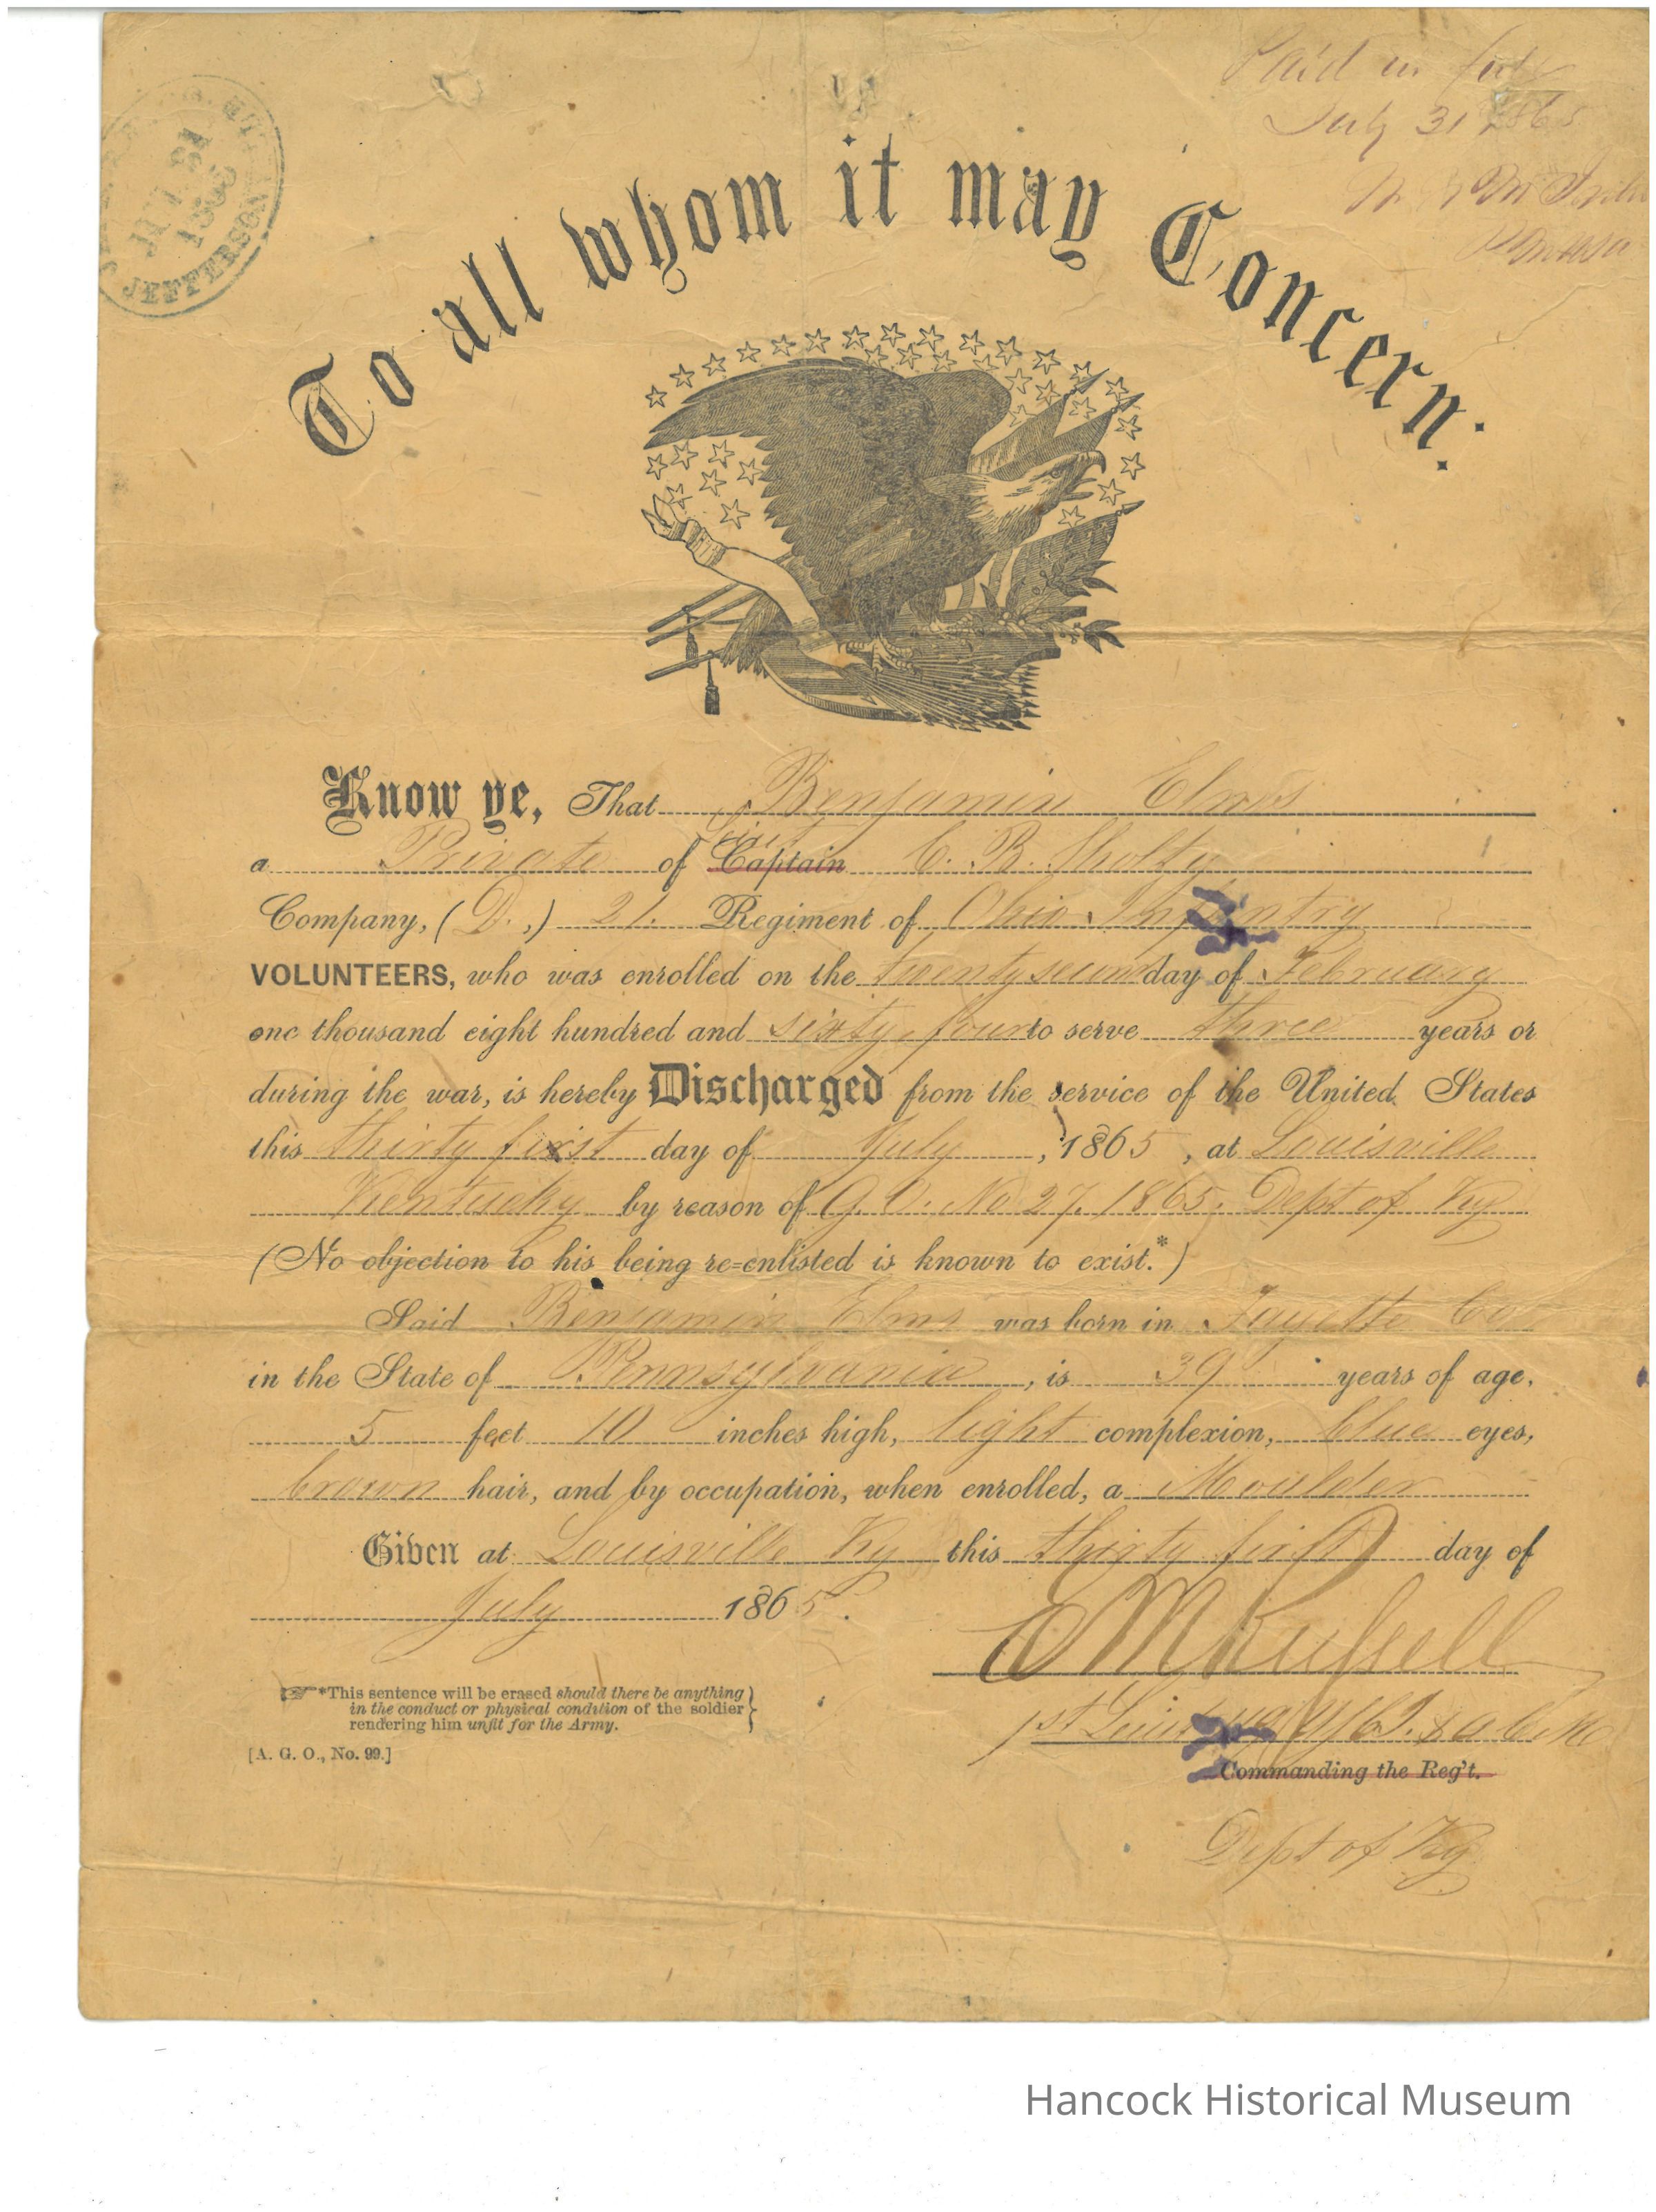 Paid in full
July 31 1865
JUL 31
1865
JEFFERSON
To all whom it may Concern:
Know ye, That Benjamin Elms
Lieut
a Private of Captain C. B. Sholty
Company, (D.,) 21. Regiment of Ohio Infantry
VOLUNTEERS, who was enrolled on the twenty second day of February
one thousand eight hundred and sixty four to serve three years or
during the war, is hereby Discharged from the service of the United States
this thirty first day of July, 1865, at Louisville
Kentucky by reason of G. O. No 27. 1865. Dept of Ky
(No objection to his being re-enlisted is known to exist.*)
Said Benjamin Elms was born in Fayette Co
in the State of Pennsylvania, is 39 years of age,
5 feet 10 inches high, light complexion, blue eyes,
brown hair, and by occupation, when enrolled, a Moulder
Given at Louisville Ky this thirty first day of
July 1865.
*This sentence will be erased should there be anything
in the conduct or physical condition of the soldier
rendering him unfit for the Army.
[A. G. O., No. 99.]
Russell
1st
Commanding the Reg't.
Dept of Ky
Hancock Historical Museum